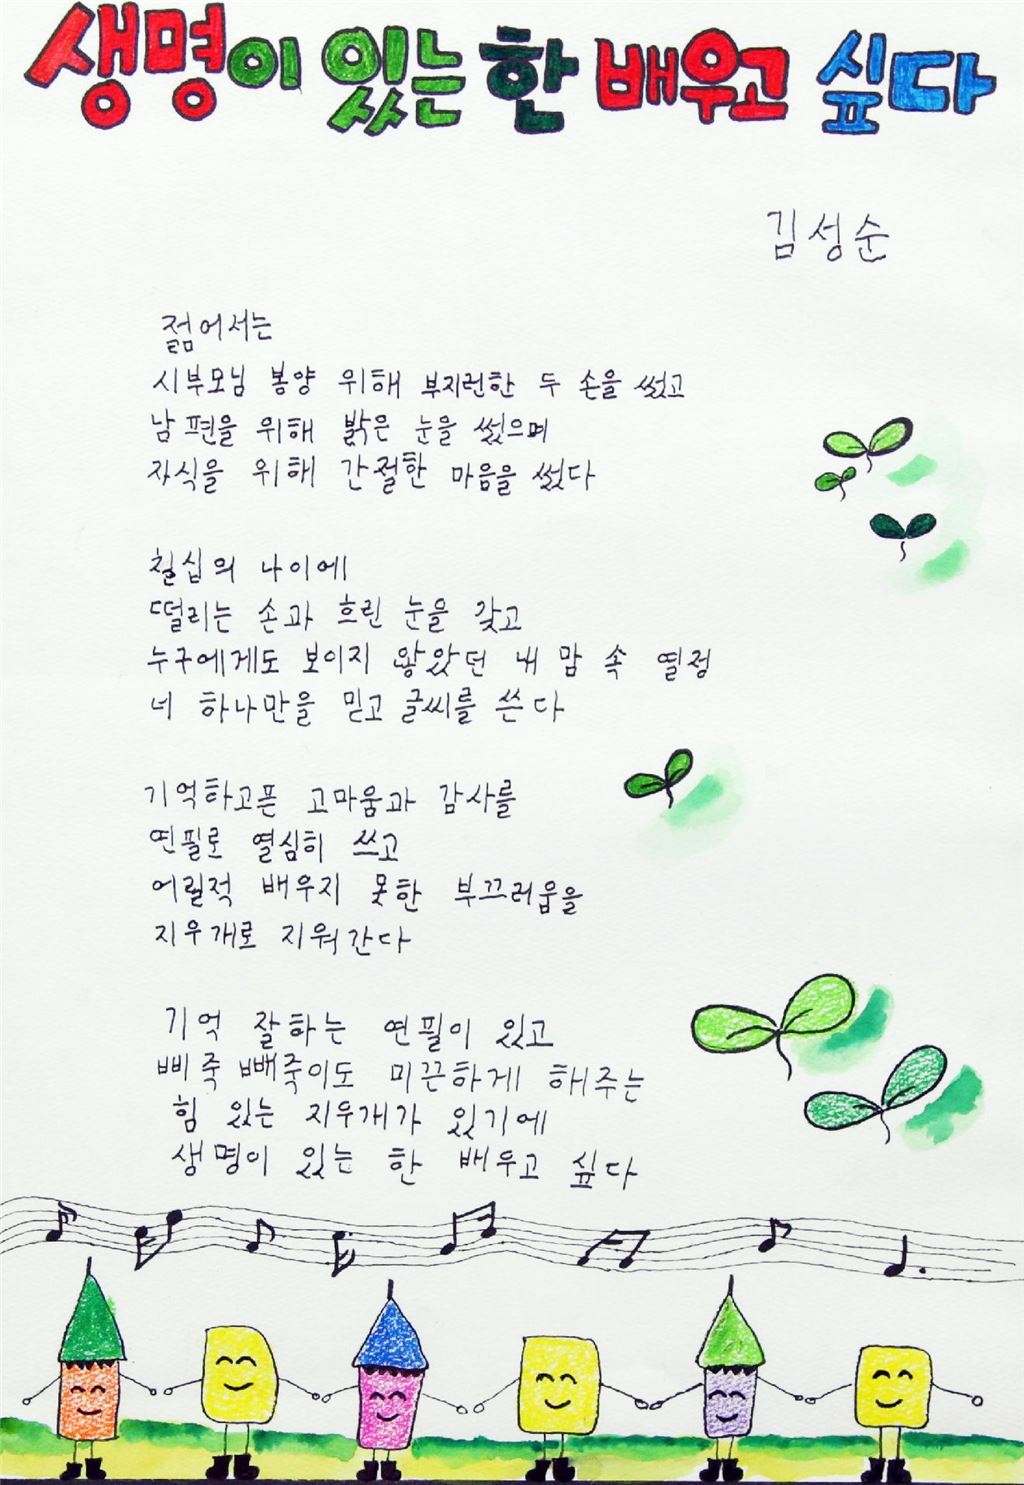 생명이 있는 한 배우고 싶다
김성순
젊어서는
시부모님 봉양 위해 부지런한 두 손을 썼고
남편을 위해 밝은 눈을 썼으며
자식을 위해 간절한 마음을 썼다
칠십의 나이에
떨리는 손과 흐린 눈을 갖고
누구에게도 보이지 않았던 내 맘 속 열정
너 하나만을 믿고 글씨를 쓴다
기억하고픈 고마움과 감사를
연필로 열심히 쓰고
어릴적 배우지 못한 부끄러움을
지우개로 지워간다
기억 잘하는 연필이 있고
삐죽빼죽이도 미끈하게 해주는
힘 있는 지우개가 있기에
생명이 있는 한 배우고 싶다